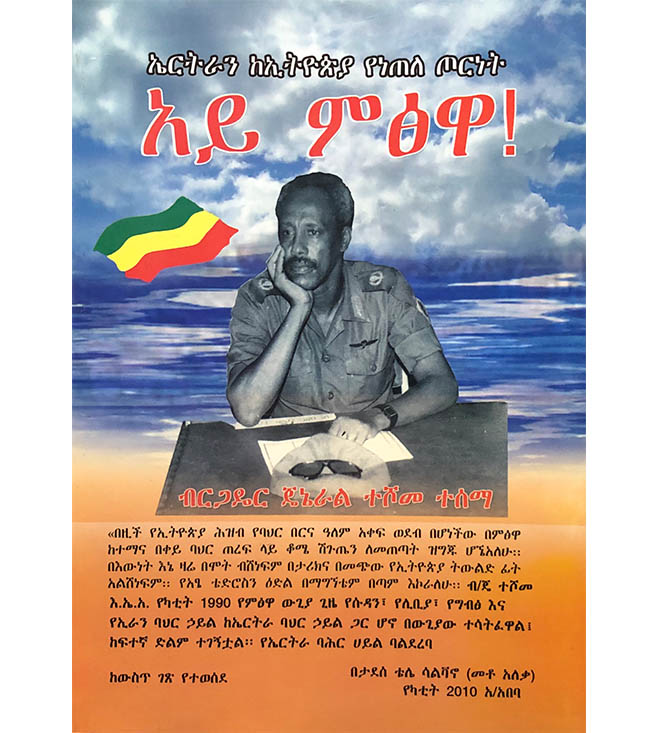 ኤርትራን ከኢትዮጵያ የነጠለ ጦርነት
አይ ምፅዋ!
ብርጋዴር ጄኔራል ተሾመ ተሰማ
«በዚች የኢትዮጵያ ሕዝብ የባህር በርና ዓለም አቀፍ ወደብ በሆነችው በምፅዋ
ከተማና በቀይ ባህር ጠረፍ ላይ ቆሜ ሽጉጤን ለመጠጣት ዝግጁ ሆኜአለሁ፡፡
በእውነት እኔ ዛሬ በሞት ብሸነፍም በታሪክና በመጭው የኢትዮጵያ ትውልድ ፊት
አልሸነፍም፡፡ የአፄ ቴድሮስን ዕድል በማግኘቴም በጣም እኮራለሁ፡፡ ብ/ጄ ተሾመ
እ.ኤ.አ. የካቲት 1990 የምፅዋ ውጊያ ጊዜ የሱዳን፣ የሊቢያ፣ የግብፅ እና
የኢራን ባህር ኃይል ከኤርትራ ባህር ኃይል ጋር ሆኖ በውጊያው ተሳትፈዋል፤
ከፍተኛ ድልም ተገኝቷል፡፡ የኤርትራ ባሕር ሀይል ባልደረባ
ከውስጥ ገጽ የተወሰደ
በታደሰ ቴሌ ሳልቫኖ (መቶ አለቃ)
የካቲት 2010 አ/አበባ